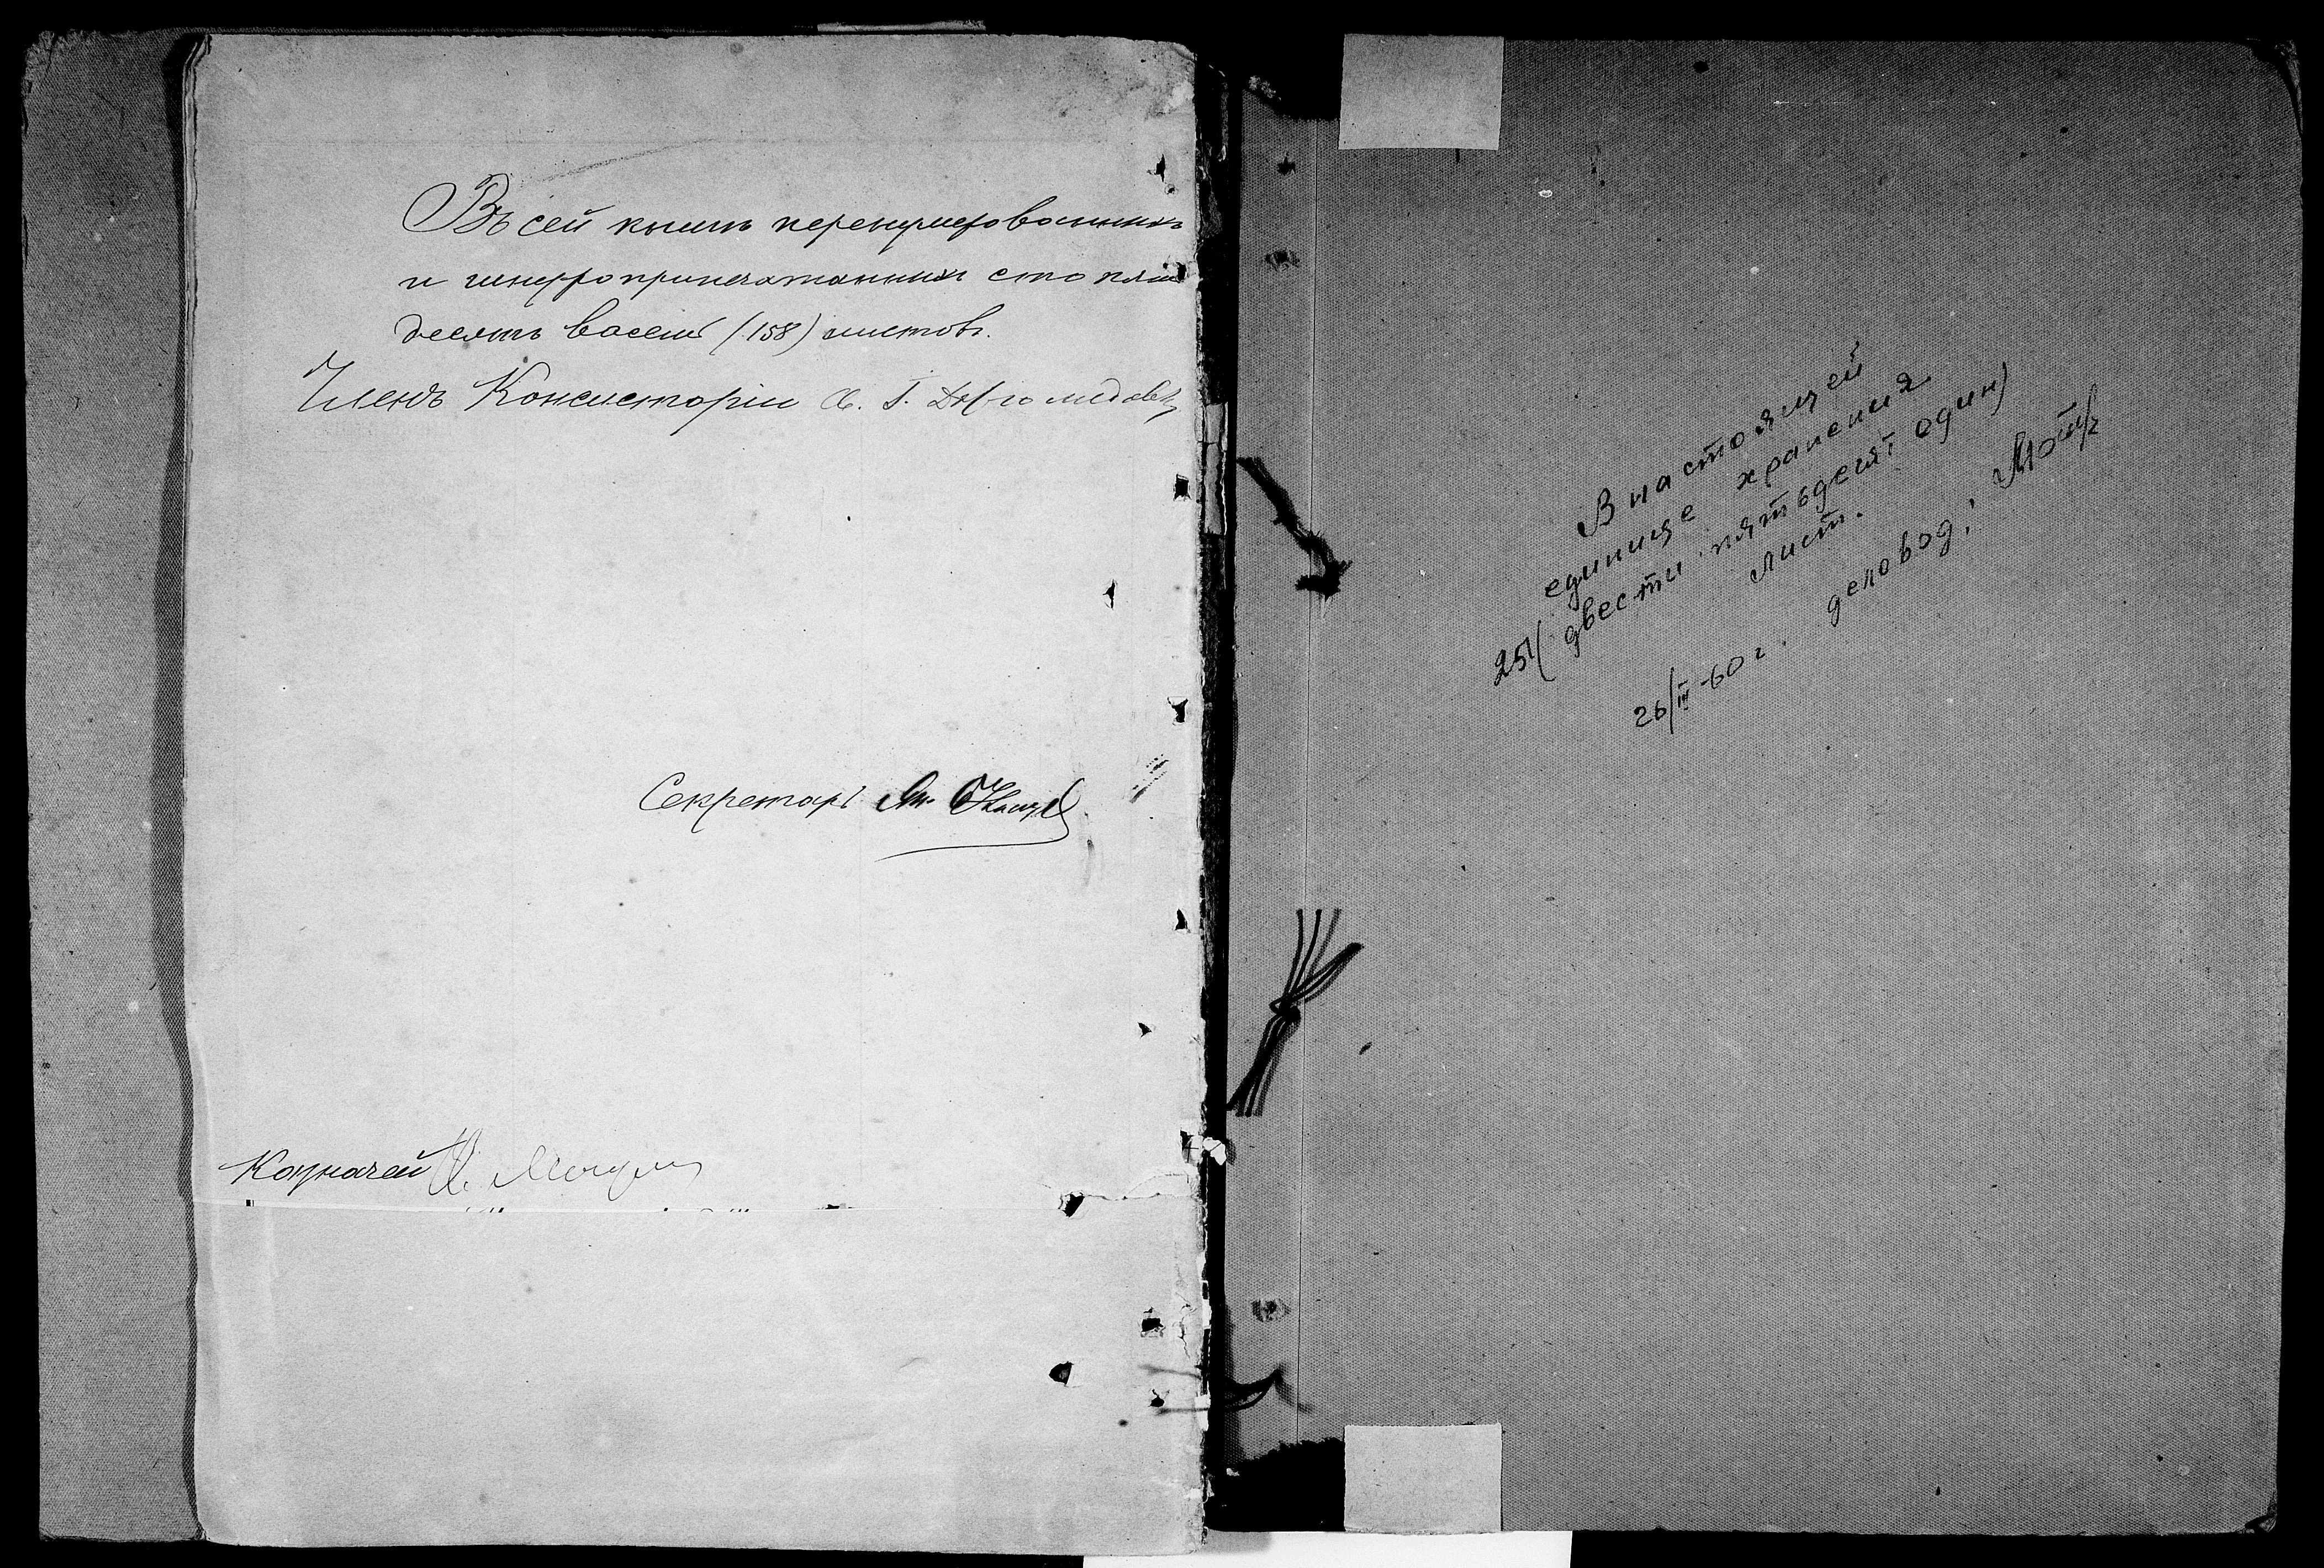 Въ сей книгѣ перенумерованныхъ
и шнуропропечатанныхъ сто пять
десятъ восемь (158) листовъ.
Членъ Консисторіи Св. Г.
Секретарь
Казначей
В настоящей
единице хранения
251 (двести пятьдесят один)
лист.
26/III-60 г. деловод: